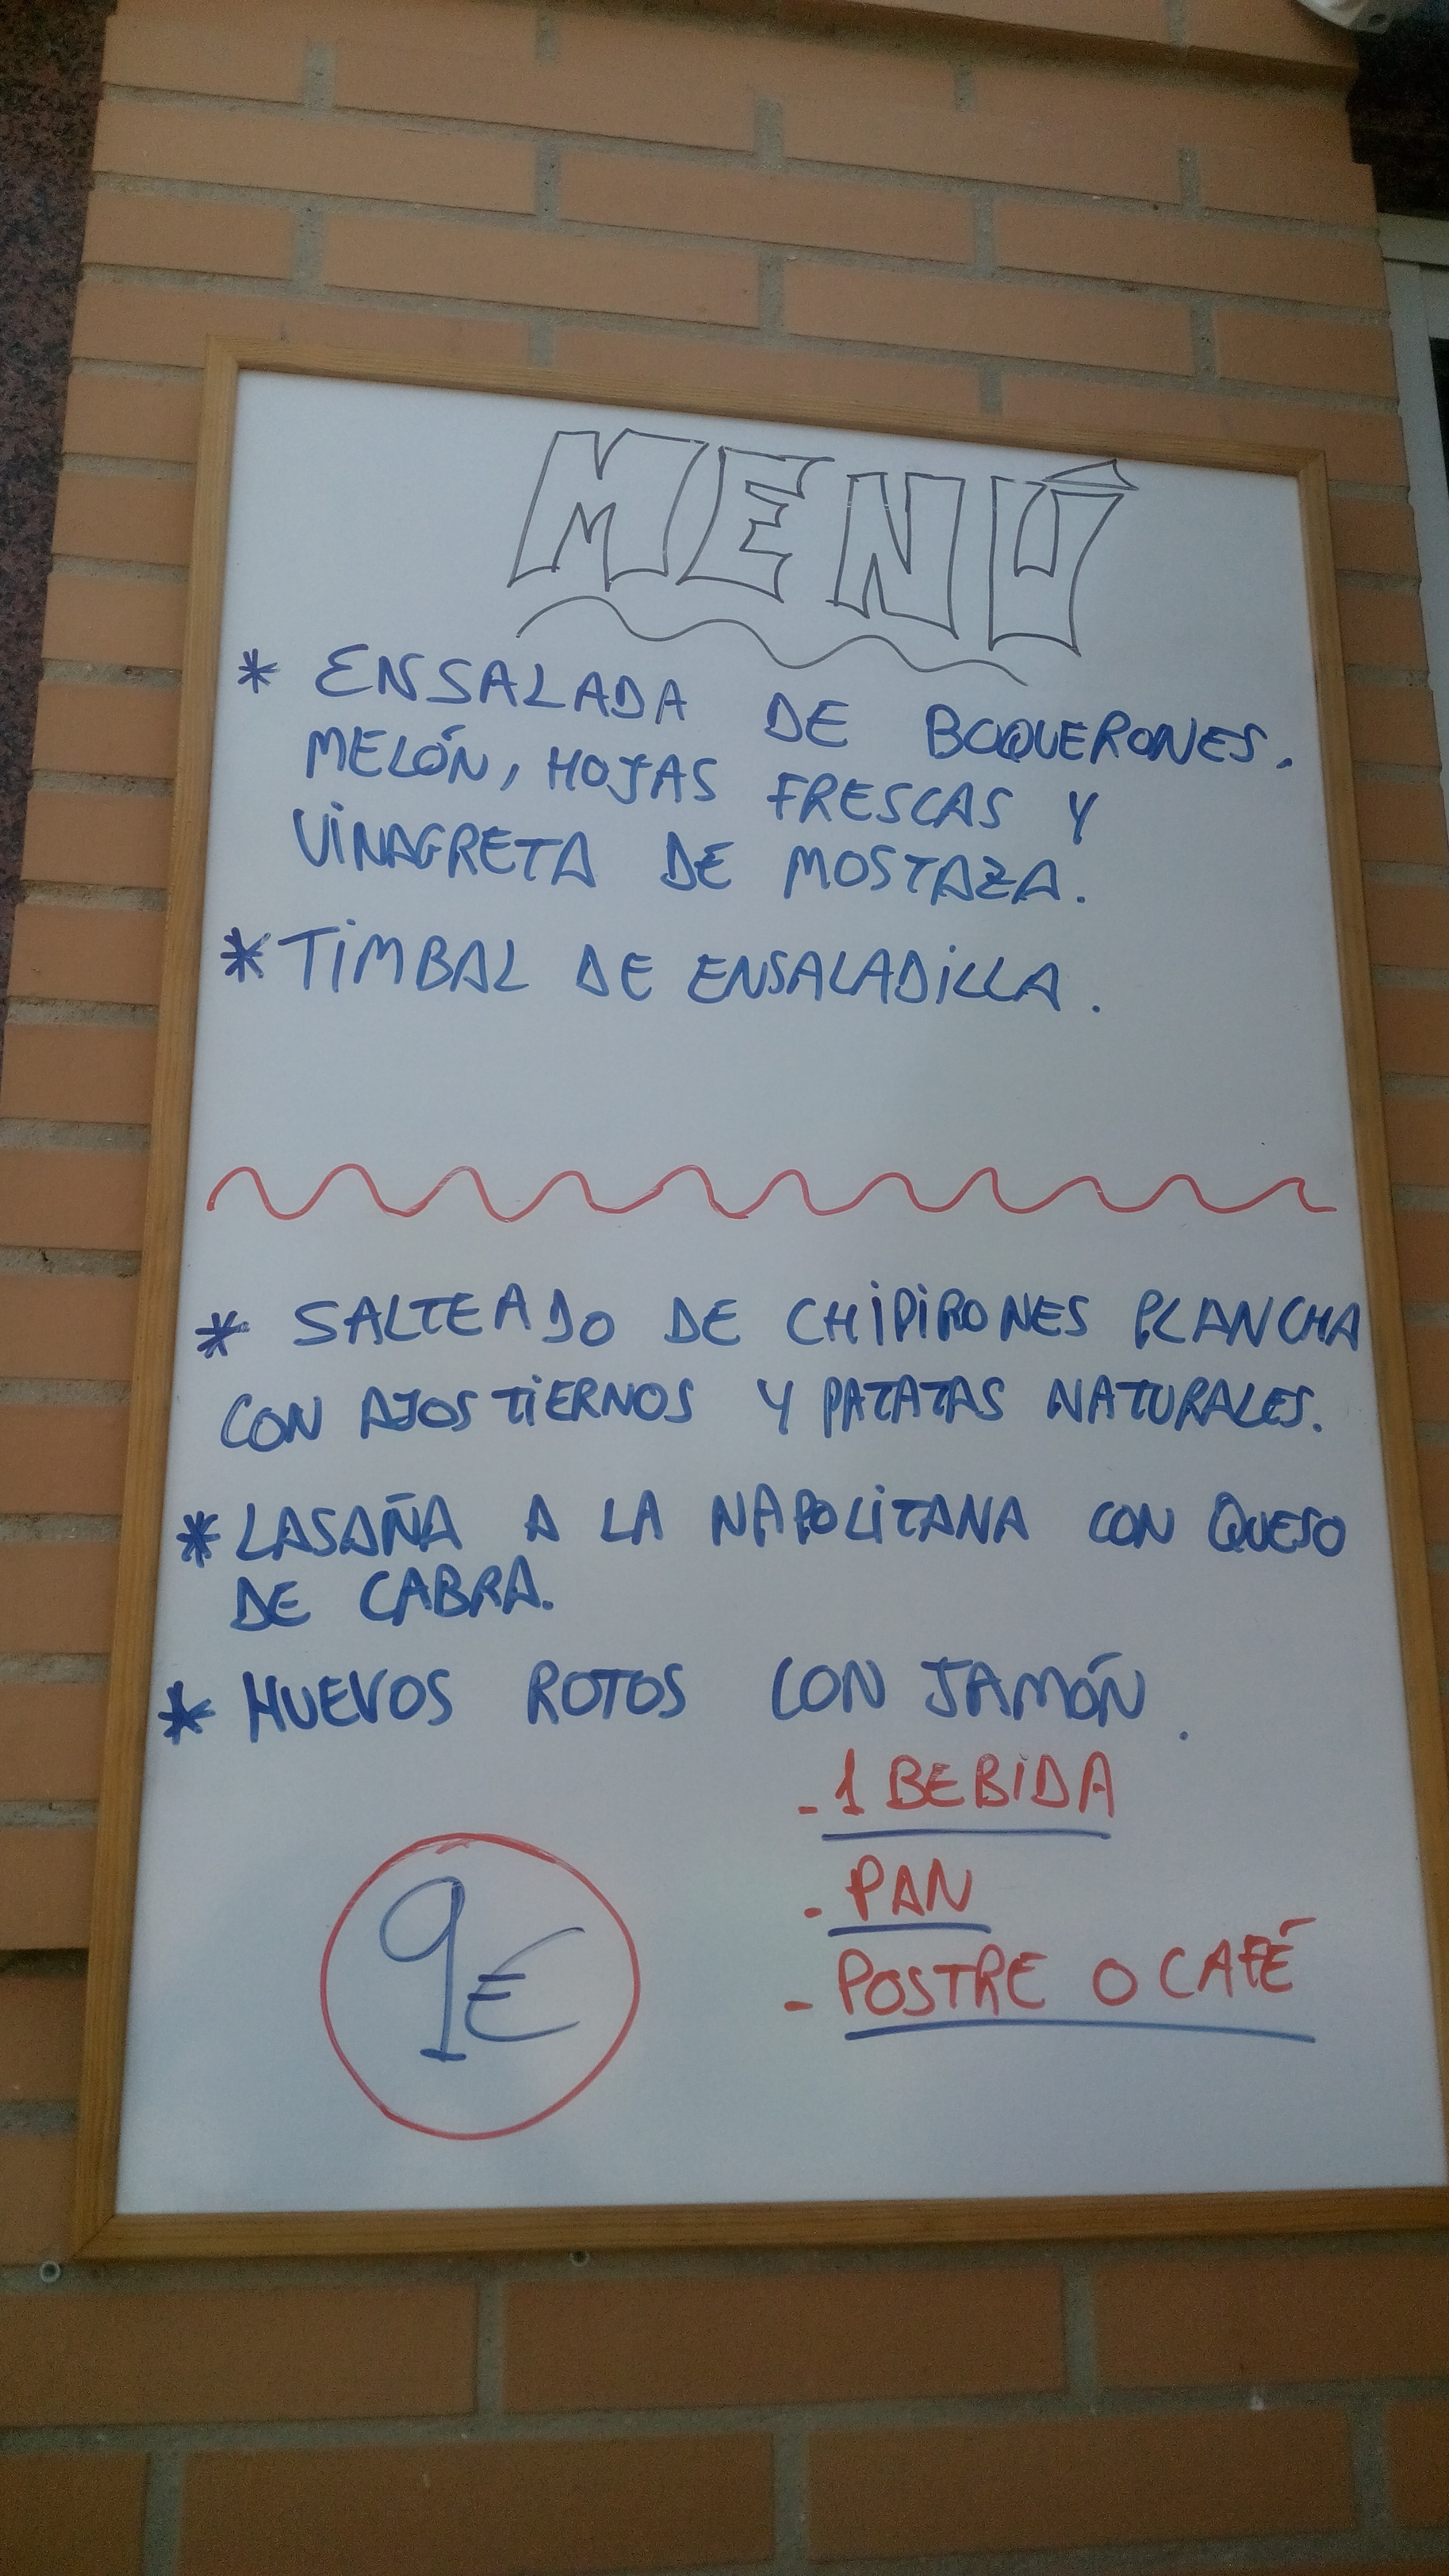 MENÚ
* ENSALADA DE BOQUERONES.
MELÓN, HOJAS FRESCAS Y
VINAGRETA DE MOSTAZA.
* TIMBAL DE ENSALADILLA.
* SALTEADO DE CHIPIRONES PLANCHA
CON AJOS TIERNOS Y PATATAS NATURALES.
* LASAÑA A LA NAPOLITANA CON QUESO
DE CABRA.
* HUEVOS ROTOS CON JAMÓN.
- 1 BEBIDA
- PAN
- POSTRE O CAFÉ
9€